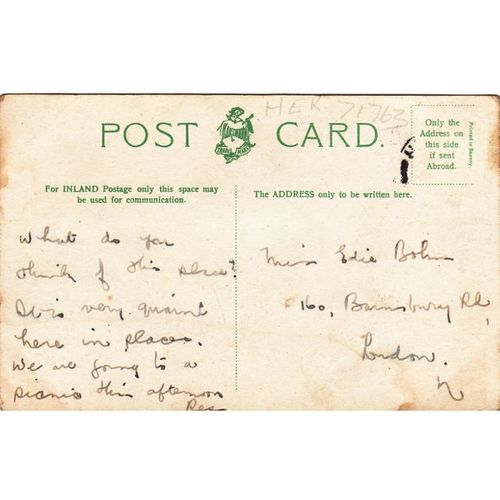 HER 71763
POST CARD.
Only the
Address on
this side
if sent
Abroad.
Printed in Saxony.
For INLAND Postage only this space may
be used for communication.
The ADDRESS only to be written here.
What do you
think of this place?
It is very quaint
here in places.
We are going to a
picnic this afternoon
Miss Edie Bohm
160, Barnsbury Rd,
London.
N